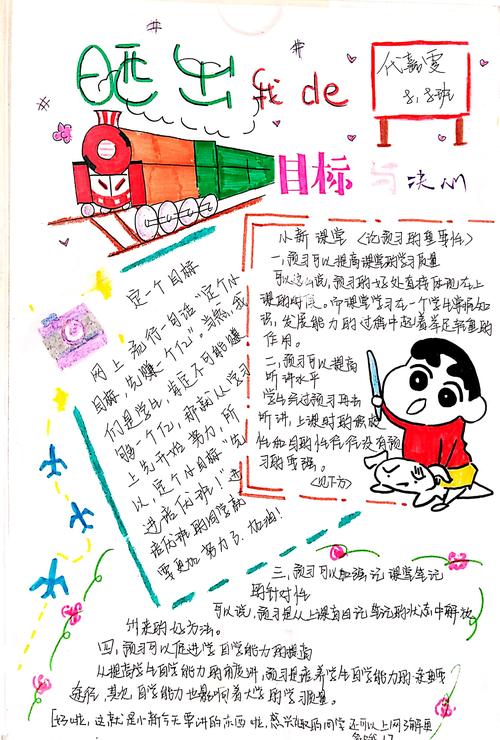 晒出我de
代嘉雯
8.8班
目标与决心
定一个目标
网上流行一句话"定个小
目标,先赚个亿"。当然,我
们是学生,肯定不可能赚
够一个亿,那就从学习
上先开始努力,所
以,定个小目标,先
进培优班!进
培优班的同学就
要更加努力了.加油!
小新课堂〈论预习的重要性〉
一,预习可以提高课堂的学习质量
可以这么说,预习的好处直接体现在上
课的时候。而课堂学习在一个学生掌握知
识,发展能力的过程中起着举足轻重的
作用。
二,预习可以提高
听讲水平
学生经过预习再去
听讲,上课时的积极
性和目的性往往没有预
习的要强。
〈见下方〉
三,预习可以加强记课堂笔记
的针对性
可以说,预习是从上课盲目记笔记的状态中解放
出来的好方法。
四,预习可以促进学自学能力的提高
从提高学生自学能力的角度讲,预习是培养学生自学能力的重要
途径,其也自学能力也影响着大学的学习质量。
[好啦,这就是小新今天要讲的东西啦,感兴趣的同学还可以上网了解更